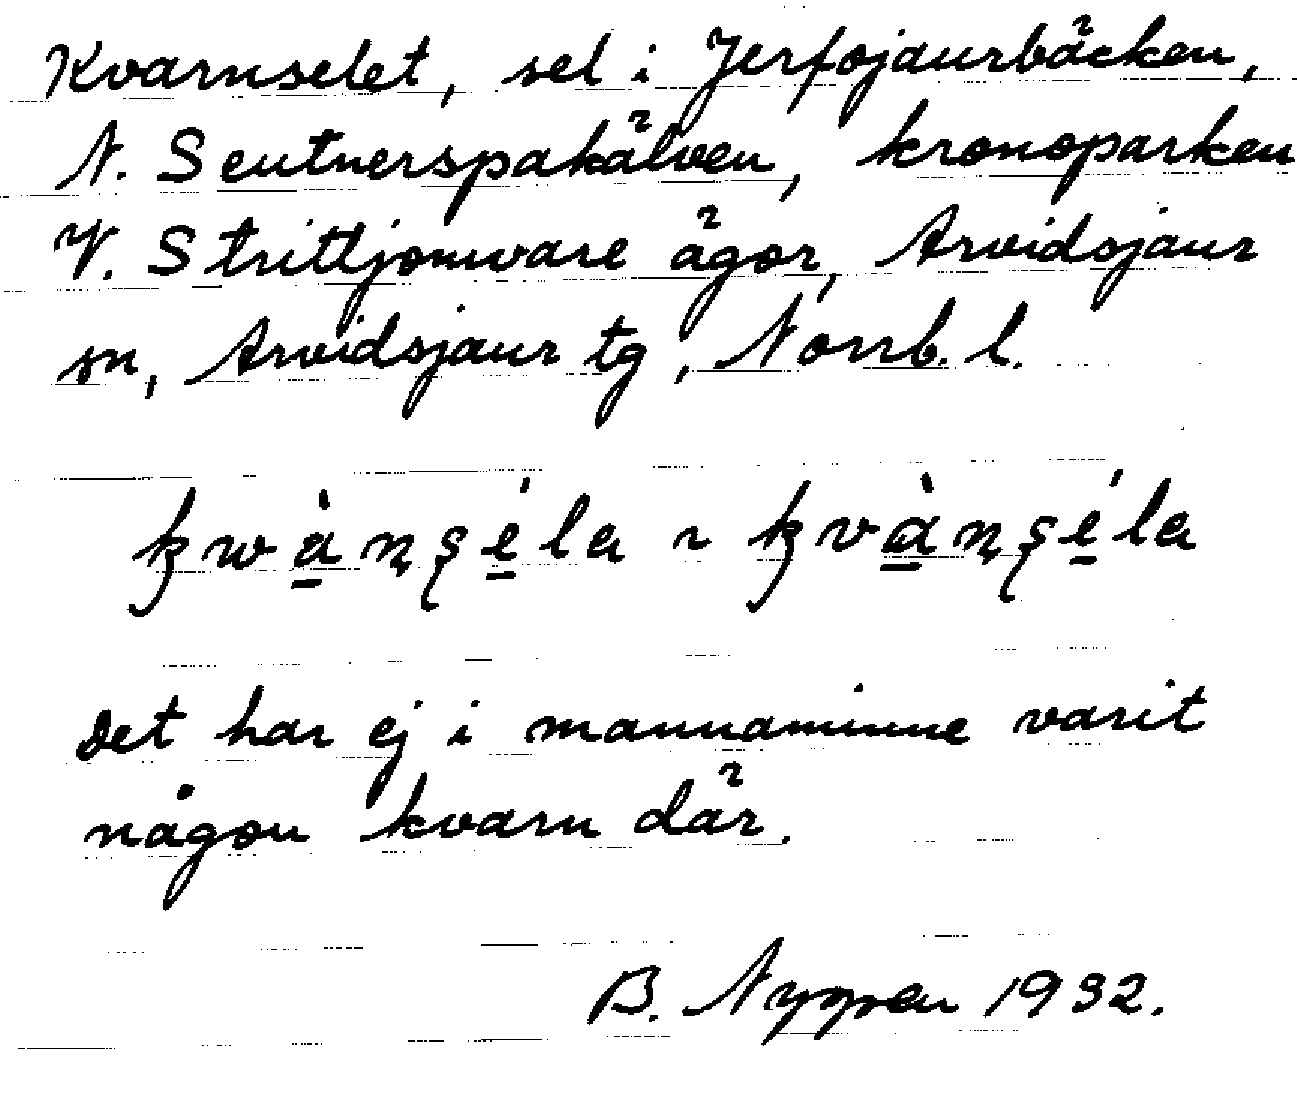 Kvarnselet, sel i Jerfojaurbäcken,
N. Seutnerspakälven, kronoparken
V. Strittjomvare ägor, Arvidsjaur
sn, Arvidsjaur tg, Norrb. l.
Det har ej i mannaminne varit
någon kvarn där.
B. Nygren 1932.